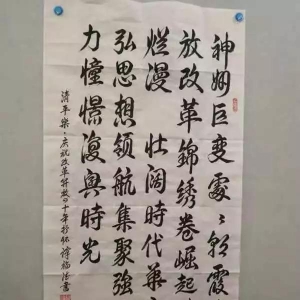 神州巨变处处朝霞
放改革锦绣卷崛起
烂漫 壮阔时代华
弘思想领航集聚强
力憧憬復興時光
清平樂·庆祝改革開放四十年